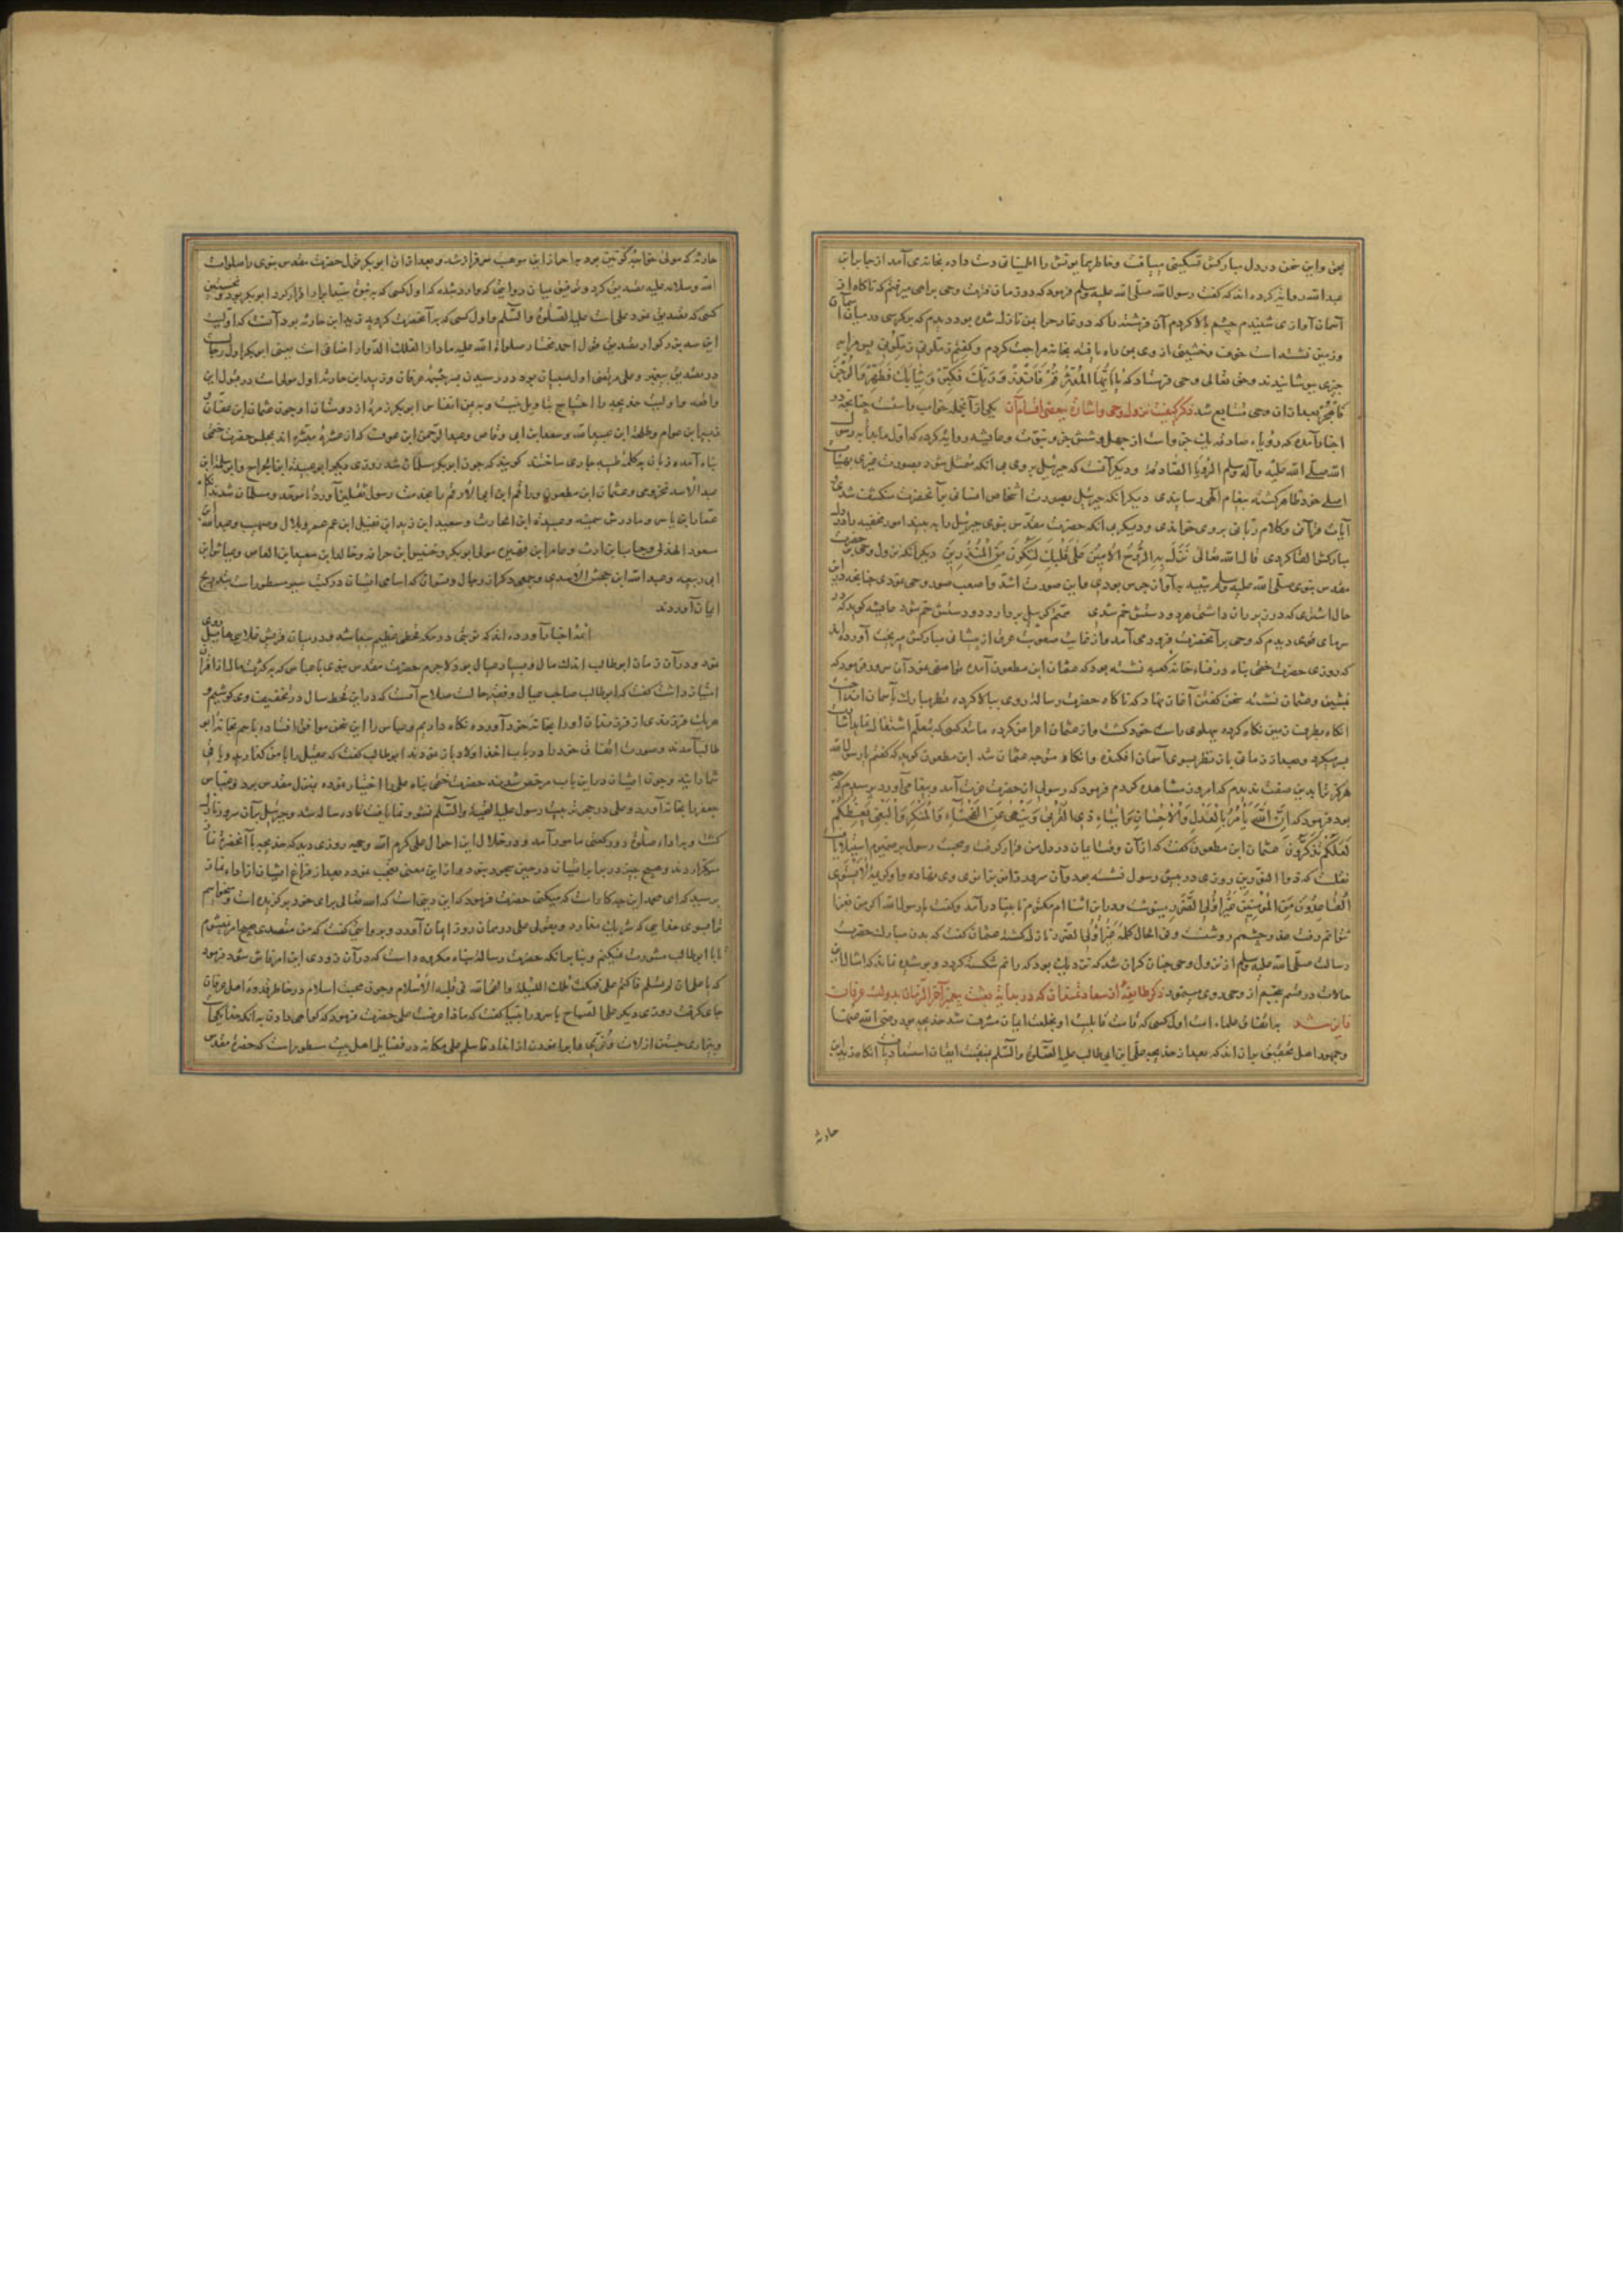 بحق و این سخن در دل مبارکش تسکینی می‌یافت و خاطر همایونش را اطمینانی دست داده بخانه می‌آمد از جابر ابن
عبدالله روایة کرده‌اند که کفت رسول الله صلی الله علیه وسلم فرمود که در زمان فترت وحی براهی میرفتم که ناکاه از
آسمان آوازی شنیدم چشم بالا کردم آن فرشته را که در غار حرا بمن نازل شده بود دیدم که بر کرسی در میان آسمان
و زمین نشسته است خوف و خشیتی از وی بمن راه یافته بخانه مراجعت کردم و کفتم زملونی زملونی پس مرا به
چیزی بپوشانیدند و حق تعالی وحی فرستاد که یا ایها المدثر قم فانذر و ربک فکبر و ثیابک فطهر و الرجز
فاهجر بعد از ان وحی متتابع شد ذکر کیفیت نزول وحی و اشارة ببعضی اقسام آن یکی از آنجمله خواب راست چنانچه در
اخبار آمده که رؤیاء صادقه یک جزو است از چهل و شش جزو نبوت و عایشه روایة کرده که اول ما بدأ به رسول
الله صلی الله علیه و آله وسلم الرؤیا الصادقة و دیکر آنست که جبرئیل بر وی بی آنکه متمثل شود بصورت غیری بهیئات
اصلی خود ظاهر کشته پیغام الهی رسانیدی دیکر آنکه جبرئیل بصورت اشخاص انسانی بر آنحضرت منکشف شدی
آیات قرآنی و کلام ربانی بر وی خواندی و دیکر بی آنکه حضرت مقدس نبوی جبرئیل را به بیند امور مخفیه را در دل
مبارکش القا کردی قال الله تعالی نزل به الروح الامین علی قلبک لتکون من المنذرین دیکر آنکه نزول وحی بر حضرت
مقدس نبوی صلی الله علیه وسلم شبیه به آواز جرس بودی و این صورت اشد و اصعب صور وحی بودی چنانچه در این
حال اشتری که در زیر ران داشتی هر دو دستش خم شدی عایشه کوید که در
سرمای قوی دیدم که وحی بر آنحضرت فرود می‌آمد و از غایت صعوبت عرق از پیشانی مبارکش میریخت آورده‌اند
که روزی حضرت ختمی پناه در فناء خانه کعبه نشسته بود که عثمان ابن مظعون آمده
بنشین و عثمان نشسته سخن کفتن آغاز نهاد که ناکاه حضرت رسالة روی ببالا کرده نظر مبارک بآسمان انداخت
آنکاه بطرف زمین نکاه کرده پهلوی راست خود کشت و از عثمان اعراض کرده مانند کسی که بتعلم اشتغال نماید
و بعد از زمانی باز نظر بسوی آسمان افکنده و آنکاه متوجه عثمان شد ابن مظعون کوید که کفتم یا رسول الله
هرکز ترا بدین صفت ندیدم که امروز مشاهده کردم فرمود که رسولی از حضرت عزت آمد و پیغامی آورد پرسیدم که چه
بود فرمود که ان الله یأمر بالعدل و الاحسان و ایتاء ذی القربی و ینهی عن الفحشاء و المنکر و البغی یعظکم
لعلکم تذکرون عثمان ابن مظعون کفت که از آن وقت ایمان در دل من قرار کرفت و محبت رسول بر ضمیرم استیلا یافت
نقلست که روزی در پیش رسول نشسته بود
القاعدون من المؤمنین غیر اولی الضرر مینوشت در این اثنا ام مکتوم نابینا درآمد و کفت یا رسول الله اکر من غزا
توانم رفت و فی الحال کلمه غیر اولی الضرر نازل کشت عثمان کفت که بدن مبارک حضرت
رسالت صلی الله علیه وسلم از نزول وحی چنان کران شد که نزدیک بود که رانم شکسته کردد و پوشیده نماند که
حالات در قسم پنجم از وحی روی مینمود ذکر طایفة از سعادتمندان که در بدایة بعثت پیغمبر آخر الزمان بدولت عرفان
فایز شد به اتفاق علماء امت اول کسی که بخلعت ایمان مشرف شد خدیجه بود رضی الله عنها
و جمهور اهل تحقیق بر آن‌اند که بعد از خدیجه علی ابن ابی طالب علیه الصلوة و السلم آنکاه زید ابن
حارثة
حارثه که مولی خواجه کونین بود به احراز این موهبت سرفراز شد و بعد از ان ابوبکر قول حضرت مقدس نبوی را صلوات
الله و سلامه علیه تصدیق کرد و توفیق میان روایتی که وارد شده که اول کسی که به نبوت سید ابرار اقرار کرد ابوبکر بود و نخستین
کسی که تصدیق نمود علی است علیه الصلوة و السلم و اول کسی که به آنحضرت کروید زید ابن حارثه بود آنست که اولیت
این سه بزرکوار بتصدیق قول احمد مختار صلوات الله علیه ما دار الفلک الدوار اضافی است یعنی ابوبکر اول رجال
در تصدیق پیغمبر و علی مرتضی اول صبیان بود در رسیدن بسرچشمه عرفان و زید ابن حارثه اول موالی است در قبول این
واقعه و اولیت خدیجه را احتیاج بتاویل نیست و به یمن انفاس ابوبکر زمرة از دوستان او چون عثمان ابن عفان و
زبیر ابن عوام و طلحه ابن عبیدالله و سعد ابن ابی وقاص و عبدالرحمن ابن عوف که از عشرة مبشره‌اند بمجلس حضرت ختمی
پناه آمده زبان به کلمه طیبه جاری ساختند کویند که چون ابوبکر مسلمان شد روزی دیکر ابو عبیده ابن الجراح و ابو سلمة ابن
عبدالاسد مخزومی و عثمان ابن مظعون و ارقم ابن ابی الارقم را بخدمت رسول ثقلین آورد تا موحد و مسلمان شدند آنکاه
عمار ابن یاسر و مادرش سمیه و عبیدة ابن الحارث و سعید ابن زید ابن نفیل ابن عم عمر و بلال و صهیب و عبدالله ابن
مسعود الهذلی و خباب ابن ارت و عامر ابن فهیره مولی ابوبکر و خنیس ابن حذافه و خالد ابن سعید ابن العاص و عیاش ابن
ابی ربیعه و عبدالله ابن جحش الاسدی و جمعی دیکر از رجال و نسوان که اسامی ایشان در کتب سیر مسطور است بتدریج
ایمان آوردند
ائمة اخبار آورده‌اند که نوبتی در مکه قحطی عظیم پیدا شد و در میان قریش غلایی هایل روی
نمود و در آن زمان ابوطالب اندک مال و بسیار عیال بود لاجرم حضرت مقدس نبوی با عباس که به کثرت مال از اقران
امتیاز داشت کفت که ابوطالب صاحب عیال و فقیر حالست صلاح آنست که در این قحط سال در تخفیف او می کوشیم و
هر یک فرزندی از فرزندان او را بخانه خود آورده نکاه داریم و عباس را این سخن موافق افتاده باهم بخانه ابو
طالب آمدند و صورت اتفاق خود را در باب اخذ اولاد باز نمودند ابوطالب کفت که عقیل را با من کذارید و باقی
شما دانید و چون ایشان در این باب مرخص شدند حضرت ختمی پناه علی را اختیار نموده بمنزل مقدس برد و عباس
جعفر را بخانه آورد و علی در حجر تربیت رسول علیه التحیة و السلم نشو و نما یافت تا آنکاه رسالة شد و جبرئیل بر آن سرور نازل
کشت و به اداء صلوة دو رکعتی مامور آمد و در خلال این احوال علی کرم الله وجهه روزی دید که خدیجه با آنحضرة نماز
میکزاردند و هیچ چیز در برابر ایشان در حین سجود نبود از این معنی تعجب نموده بعد از فراغ ایشان از اداء نماز
پرسید که ای محمد این چه کار است که میکنی حضرت فرمود که این دینی است که الله تعالی برای خود برکزیده است و میخوانم
ترا بسوی خدایی که شریک ندارد و بقولی علی در همان روز ایمان آورد و بروایتی کفت که من متصدی هیچ امر نمیشوم
تا با ابوطالب مشورت نمیکنم و بنابر آنکه حضرت رسالة پناه مکروه داست که در آن زودی این امر فاش شود فرمود
که یا علی ان لم تسلم فاکتم علی فمکث تلک اللیلة و القاء الله فی قلبه الاسلام و چون محبت اسلام در خاطر
جای کرفت روزی دیکر علی الصباح با سرور انبیا کفت که ماذا عرضت علی حضرت فرمود که کواهی دادن به آنکه خدا یکیست
و بیزاری جستن از لات و عزی و ابا نمودن از انداد فاسلم علی مکانه در فضایل اهل بیت مسطور است که حضرة مقدس